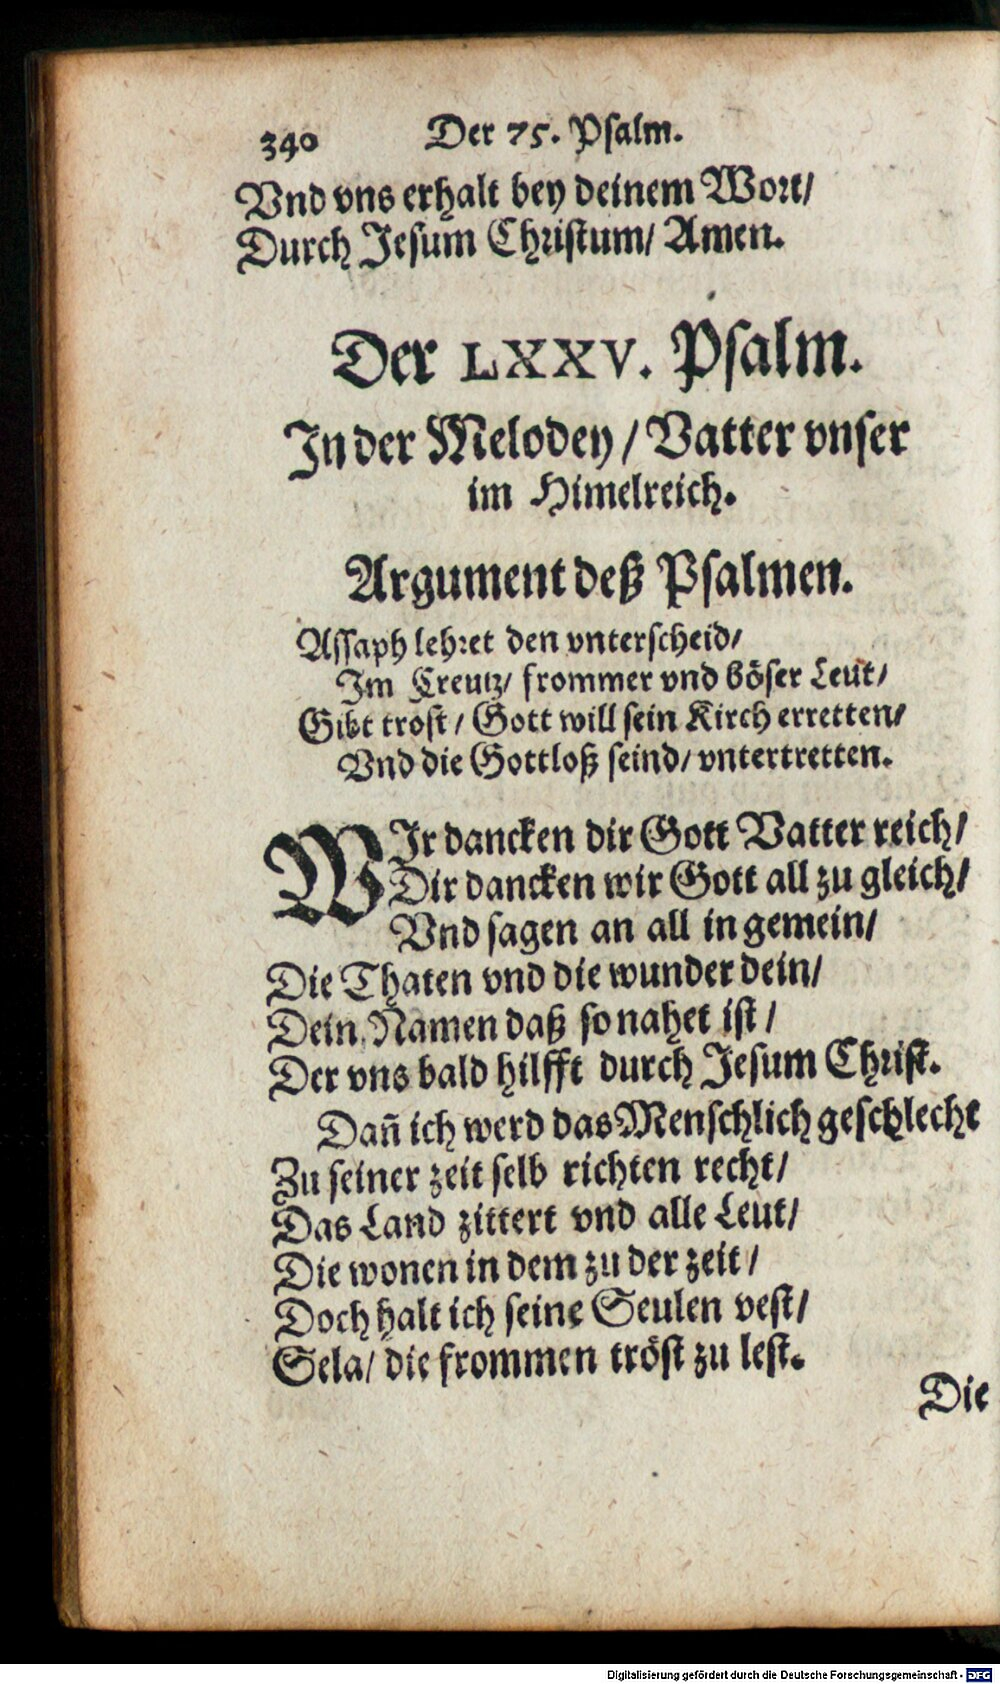 340 Der 75. Psalm.
Vnd vns erhalt bey deinem Wort/
Durch Jesum Christum/ Amen.
Der LXXV. Psalm.
In der Melodey / Vatter vnser
im Himelreich.
Argument deß Psalmen.
Assaph lehret den vnterscheid/
Im Creutz/ frommer vnd böser Leut/
Gibt trost / Gott will sein Kirch erretten/
Vnd die Gottloß seind/ vntertretten.
WIr dancken dir Gott Vatter reich/
Dir dancken wir Gott all zu gleich/
Vnd sagen an all in gemein/
Die Thaten vnd die wunder dein/
Dein Namen daß so nahet ist /
Der vns bald hilfft durch Jesum Christ.
Dañ ich werd das Menschlich geschlecht
Zu seiner zeit selb richten recht/
Das Land zittert vnd alle Leut/
Die wonen in dem zu der zeit /
Doch halt ich seine Seulen vest/
Sela/ die frommen tröst zu lest.
Die
Digitalisierung gefördert durch die Deutsche Forschungsgemeinschaft - DFG